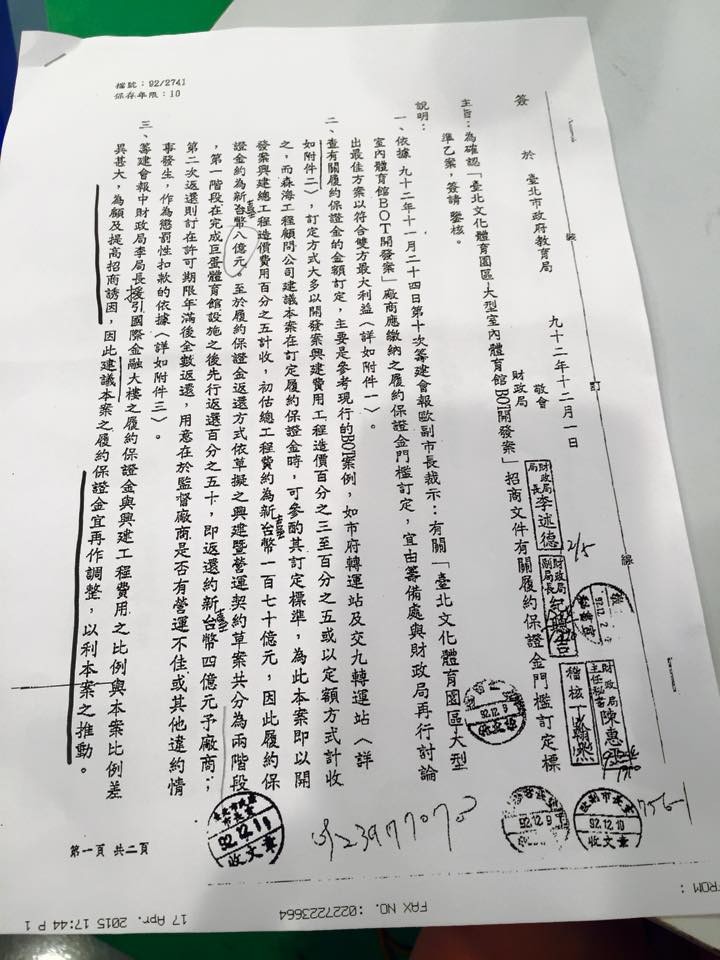 檔號：92/2741
保存年限：10
簽　於　臺北市政府教育局
九十二年十二月一日
敬會
財政局
主旨：為確認「臺北文化體育園區大型室內體育館BOT開發案」招商文件有關履約保證金門檻訂定標
準乙案，簽請　鑒核。
說明：
一、依據九十二年十一月二十四日第十次籌建會報歐副市長裁示：有關「臺北文化體育園區大型
室內體育館BOT開發案」廠商應繳納之履約保證金門檻訂定，宜由籌備處與財政局再行討論
出最佳方案以符合雙方最大利益（詳如附件一）。
二、查有關履約保證金的金額訂定，主要是參考現行的BOT案例，如市府轉運站及交九轉運站（詳
如附件二），訂定方式大多以開發案興建費用工程造價百分之三至百分之五或以定額方式計收
之，而森海工程顧問公司建議本案在訂定履約保證金時，可參酌其訂定標準，為此本案即以開
發案興建總工程造價費用百分之五計收，初估總工程費約為新台幣一百七十億元，因此履約保
證金約為新台幣八億元。至於履約保證金返還方式依草擬之興建暨營運契約草案共分為兩階段
，第一階段在完成巨蛋體育館設施之後先行返還百分之五十，即返還約新台幣四億元予廠商；
第二次返還則訂在許可期限年滿後全數返還，用意在於監督廠商是否有營運不佳或其他違約情
事發生，作為懲罰性扣款的依據（詳如附件三）。
三、籌建會報中財政局李局長援引國際金融大樓之履約保證金與興建工程費用之比例與本案比例差
異甚大，為顧及提高招商誘因，因此建議本案之履約保證金宜再作調整，以利本案之推動。
財政局
局長 李述德
2/5
財政局
副局長
財政局
主任秘書 陳惠
稽核
92.12.9
92.12.9
92.12.10
收文章
756-1
92.12.11
收文章
23977070
第一頁 共二頁
裝
訂
線
17 Apr. 2015 17:44 P 1
FAX NO. :0227223664
FROM :